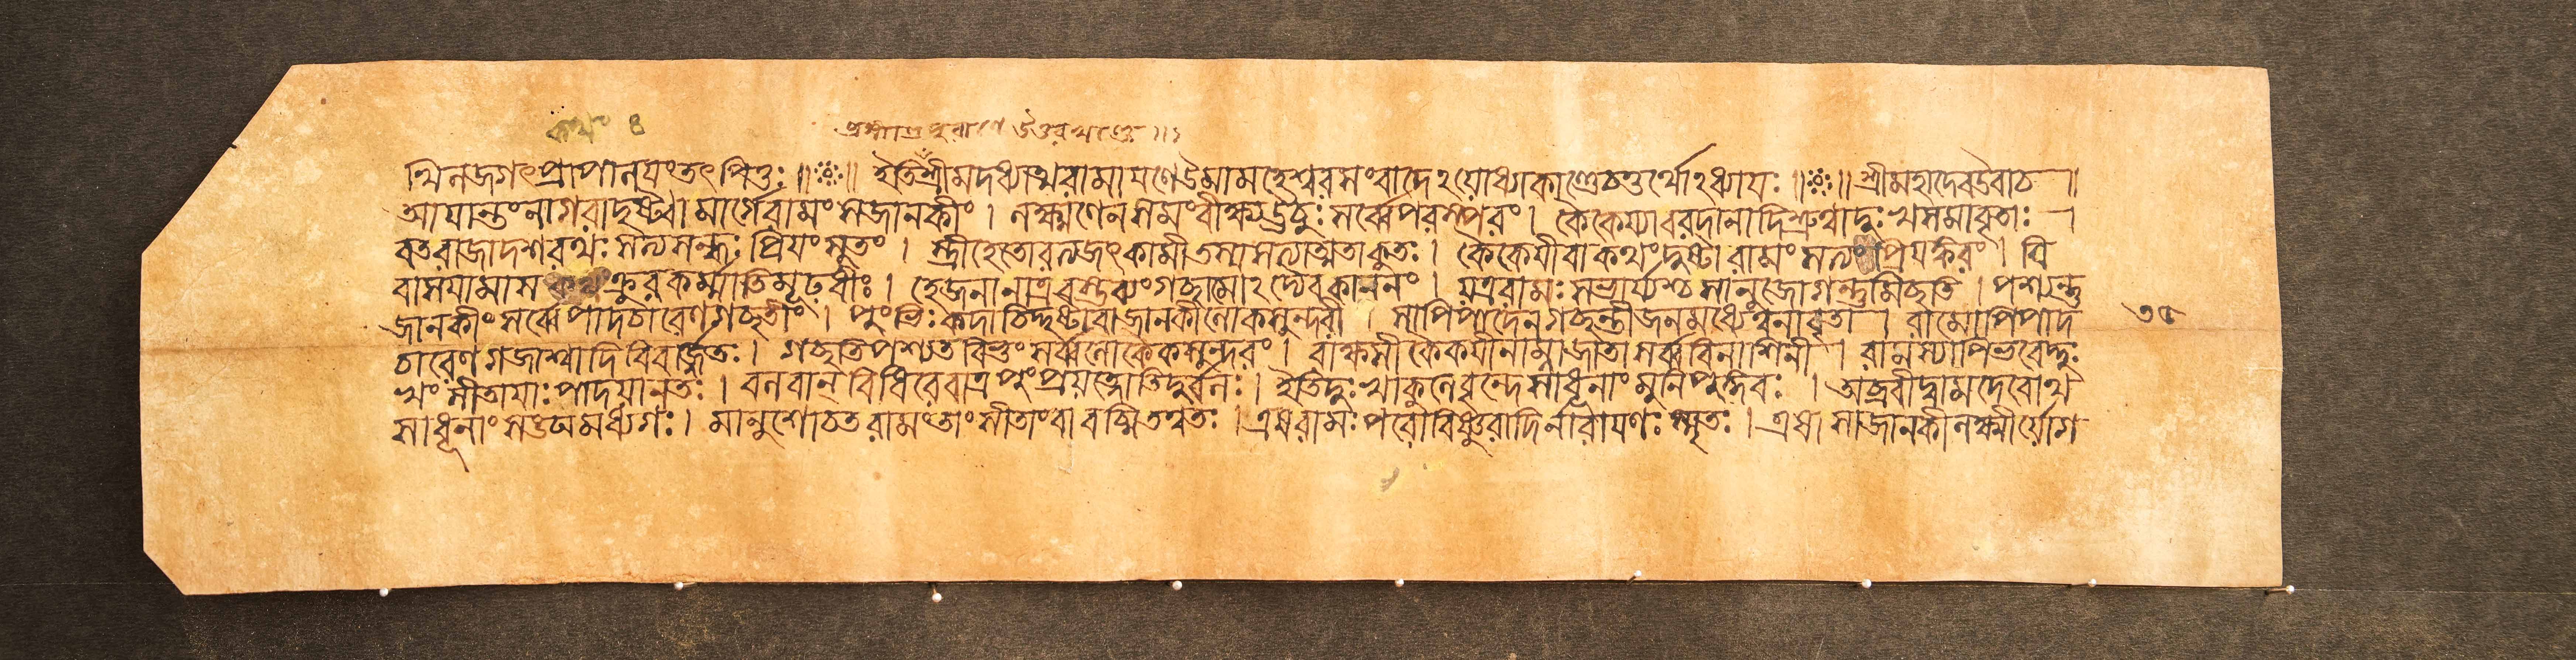 ব্রহ্মাণ্ডপুরাণে উত্তরখণ্ডে ।।
খিনজগৎপ্রাপানযংতৎ পিতুঃ ॥ ॥ ইতিশ্রীমদধ্যাত্মরামাযণেউমামহেশ্বরসংবাদেঽযোধ্যাকাণ্ডেচতুর্থোঽধ্যাযঃ ॥ ॥ শ্রীমহাদেবউবাচ ॥
আযান্তংনাগরাদৃষ্ট্বা মার্গেরামং সজানকীং । লক্ষ্মণেনসমংবীক্ষ্যঊচুঃ সর্ব্বেপরস্পরং । কৈকেয্যাবরদানাদিশ্রুত্বাদুঃখসমাবৃতাঃ ।
বতরাজাদশরথঃ সত্যসন্ধঃ প্রিযংসুতং । স্ত্রীহেতোরত্যজৎকামীতস্যসত্যাত্মতাকুতঃ । কৈকেযীবাকথংদুষ্টা রামং সত্যং প্রিযঙ্করং । বি
বাসযামাস কথং ক্রূরকর্ম্মাতিমূঢ়ধীঃ । হেজনানাত্রবস্তব্যংগচ্ছামোঽদ্যৈবকাননং । যত্ররামঃ সভার্য্যশ্চ সানুজোগন্তুমিচ্ছতি । পশ্যন্তু
জানকীং সর্ব্বেপাদচারেণগচ্ছতীং । পুংভিঃ কদাচিদ্দৃষ্টাবাজানকীলোকসুন্দরী । সাপিপাদেনগচ্ছন্তীজনসংঘেষ্বনাবৃতা । রামোপিপাদ
চারেণগজাশ্বাদিবিবর্জ্জিতঃ । গচ্ছতিপশ্যতবিভুং সর্ব্বলোকৈকসুন্দরং । রাক্ষসীকৈকযীনাম্নাজাতা সর্ব্ববিনাশিনী । রামস্যাপিভবেদ্দুঃ
খং সীতাযাঃ পাদযানতঃ । বলবান্ বিধিরেবাত্র পুংপ্রযত্নোতিদুর্বলঃ । ইতিদুঃখাকুলেবৃন্দে সাধূনাংমুনিপুঙ্গবঃ । অব্রবীদ্বামদেবোথ
সাধূনাং সঙ্ঘমধ্যগঃ । মানুশোচত রামং তাং সীতাং বা বচ্মিতত্বতঃ । এষরামঃ পরোবিষ্ণুরাদিনারাযণঃ স্মৃতঃ । এষা সাজানকীলক্ষ্মীর্যোগ